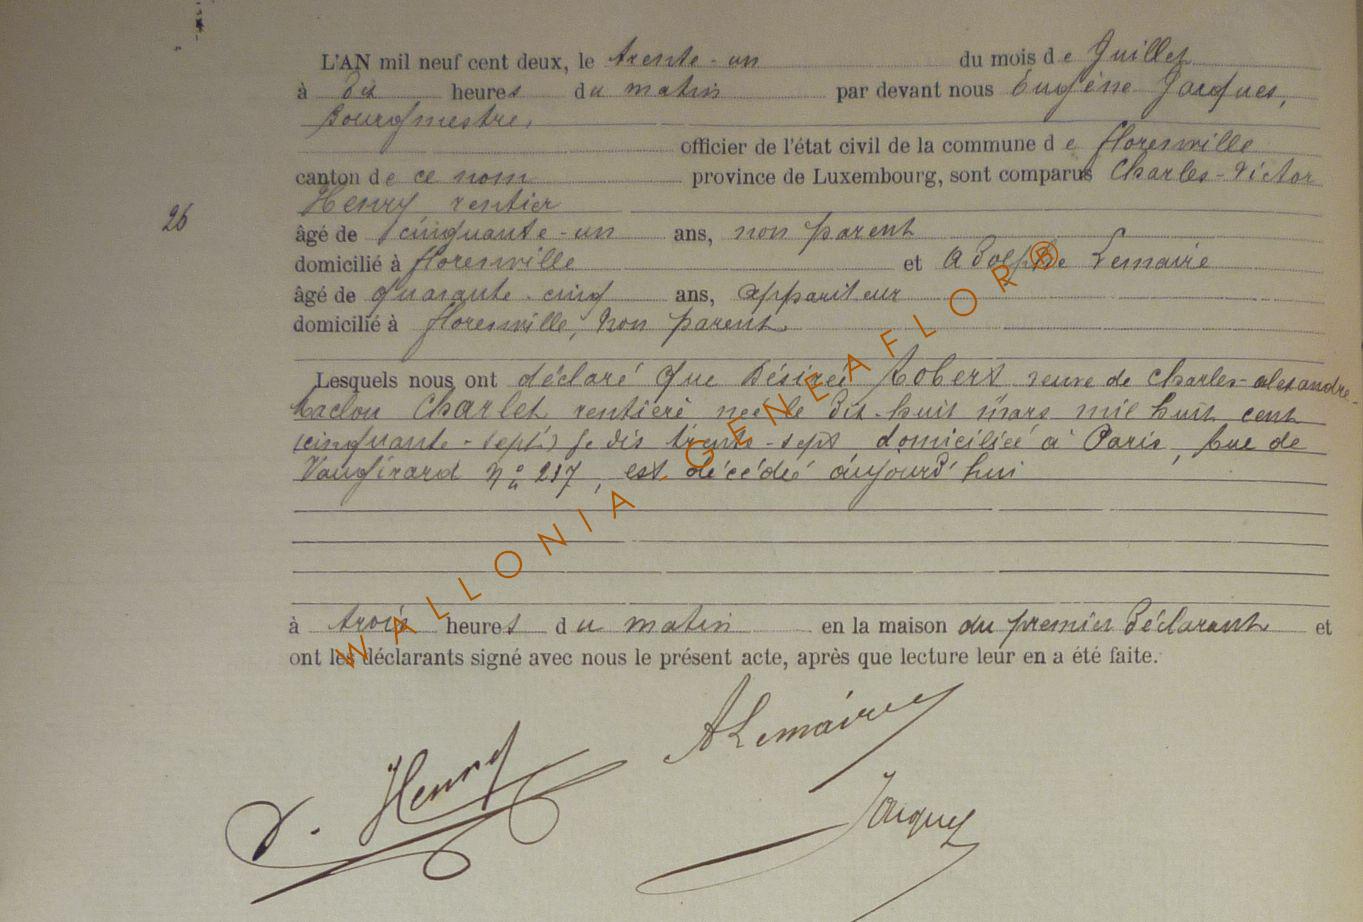 L'AN mil neuf cent deux, le trente-un du mois de Juillet
à dix heures du matin par devant nous Eugène Jacques,
Bourgmestre,
officier de l'état civil de la commune de Florenville
canton de ce nom province de Luxembourg, sont comparus Charles-Victor
Henry rentier
26
âgé de cinquante-un ans, non parent
domicilié à Florenville et Adolphe Lemaire
âgé de quarante-cinq ans, appariteur
domicilié à Florenville, non parent
Lesquels nous ont déclaré que Désirée Robert veuve de Charles-alexandre-
Maclou Charlet rentière née le dix-huit mars mil huit cent
(cinquante-sept) je dis trente-sept domiciliée à Paris, Rue de
Vaugirard n° 217, est décédée aujourd'hui
à trois heures du matin en la maison du premier déclarant et
ont les déclarants signé avec nous le présent acte, après que lecture leur en a été faite.
V. Henry
A Lemaire
Jacques
WALLONIA GENEAFLOR®